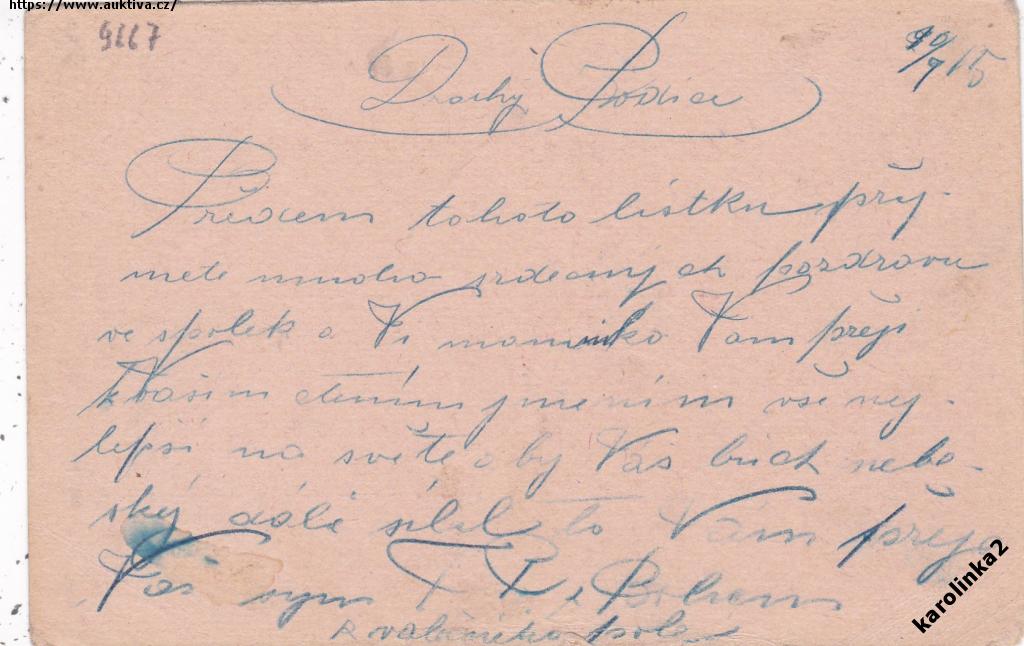 https://www.auktiva.cz/
9667
29/9 15
Drahý Rodiče
Předem tohoto lístku přij-
mete mnoho srdečných pozdravu
ve spolek a Vi maminko Vam přeji
k Vašim ctěním jmeninám vse nej-
lepší na světe aby Vás buch nebe-
ský dále sílel to Vám přeje
Vas syn
s Bohem
z valečneho pole
karolinka2